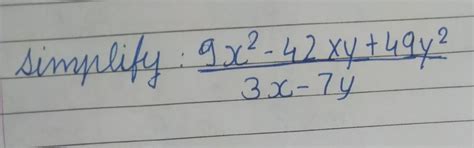 simplify : 9x² - 42xy + 49y²
3x - 7y